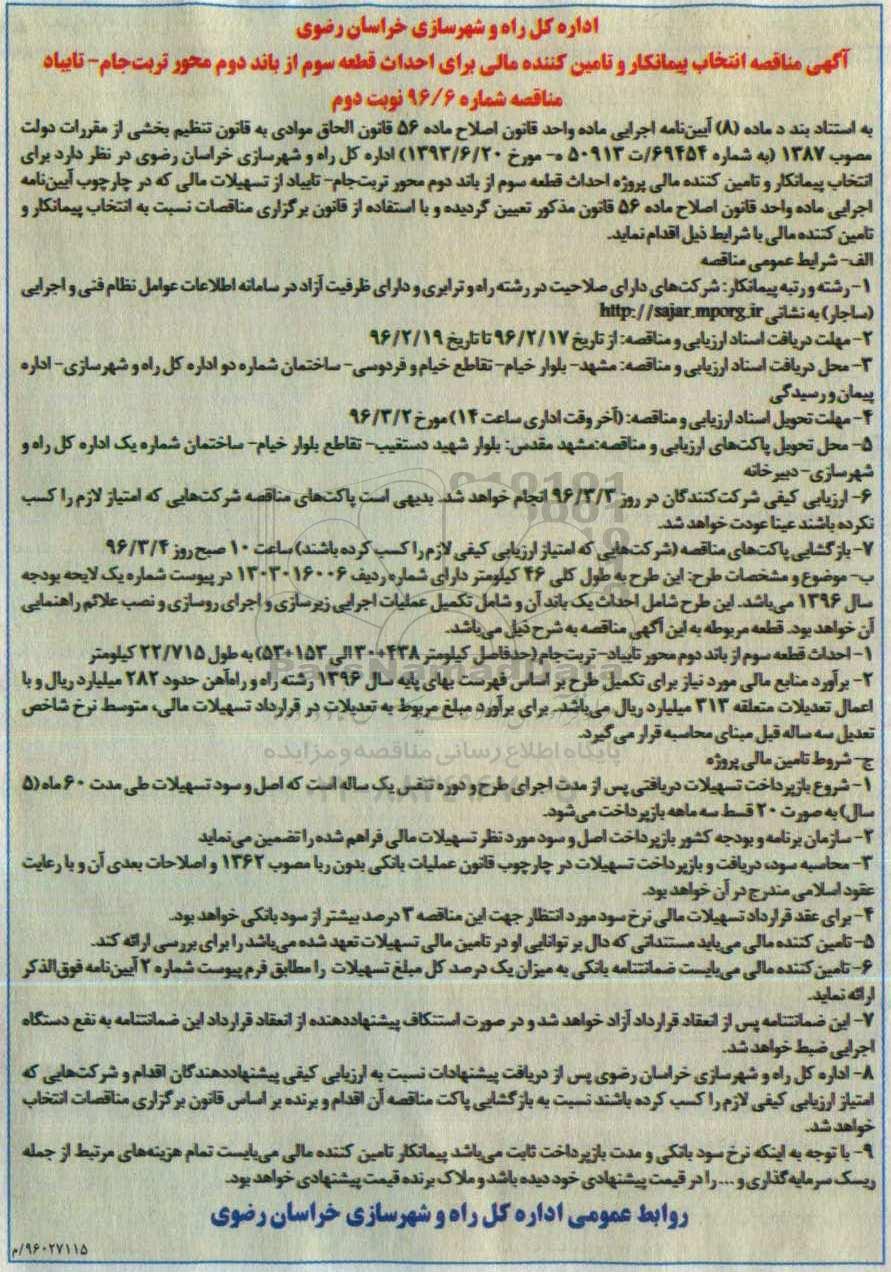 اداره کل راه و شهرسازی خراسان رضوی
آگهی مناقصه انتخاب پیمانکار و تامین کننده مالی برای احداث قطعه سوم از باند دوم محور تربت‌جام- تایباد
مناقصه شماره ۹۶/۶ نوبت دوم
به استناد بند د ماده (۸) آیین‌نامه اجرایی ماده واحد قانون اصلاح ماده ۵۶ قانون الحاق موادی به قانون تنظیم بخشی از مقررات دولت
مصوب ۱۳۸۷ (به شماره ۶۹۴۵۴/ت ۵۰۹۱۳ ه- مورخ ۱۳۹۳/۶/۲۰) اداره کل راه و شهرسازی خراسان رضوی در نظر دارد برای
انتخاب پیمانکار و تامین کننده مالی پروژه احداث قطعه سوم از باند دوم محور تربت‌جام- تایباد از تسهیلات مالی که در چارچوب آیین‌نامه
اجرایی ماده واحد قانون اصلاح ماده ۵۶ قانون مذکور تعیین گردیده و با استفاده از قانون برگزاری مناقصات نسبت به انتخاب پیمانکار و
تامین کننده مالی با شرایط ذیل اقدام نماید.
الف- شرایط عمومی مناقصه
۱- رشته و رتبه پیمانکار: شرکت‌های دارای صلاحیت در رشته راه و ترابری و دارای ظرفیت آزاد در سامانه اطلاعات عوامل نظام فنی و اجرایی
(ساجار) به نشانی http://sajar.mporg.ir
۲- مهلت دریافت اسناد ارزیابی و مناقصه: از تاریخ ۹۶/۲/۱۷ تا تاریخ ۹۶/۲/۱۹
۳- محل دریافت اسناد ارزیابی و مناقصه: مشهد- بلوار خیام- تقاطع خیام و فردوسی- ساختمان شماره دو اداره کل راه و شهرسازی- اداره
پیمان و رسیدگی
۴- مهلت تحویل اسناد ارزیابی و مناقصه: (آخر وقت اداری ساعت ۱۴) مورخ ۹۶/۳/۲
۵- محل تحویل پاکت‌های ارزیابی و مناقصه:مشهد مقدس: بلوار شهید دستغیب- تقاطع بلوار خیام- ساختمان شماره یک اداره کل راه و
شهرسازی- دبیرخانه
۶- ارزیابی کیفی شرکت‌کنندگان در روز ۹۶/۳/۳ انجام خواهد شد. بدیهی است پاکت‌های مناقصه شرکت‌هایی که امتیاز لازم را کسب
نکرده باشند عینا عودت خواهد شد.
۷- بازگشایی پاکت‌های مناقصه (شرکت‌هایی که امتیاز ارزیابی کیفی لازم را کسب کرده باشند) ساعت ۱۰ صبح روز ۹۶/۳/۴
ب- موضوع و مشخصات طرح: این طرح به طول کلی ۴۶ کیلومتر دارای شماره ردیف ۱۳۰۳۰۱۶۰۰۶ در پیوست شماره یک لایحه بودجه
سال ۱۳۹۶ می‌باشد. این طرح شامل احداث یک باند آن و شامل تکمیل عملیات اجرایی زیرسازی و اجرای روسازی و نصب علائم راهنمایی
آن خواهد بود. قطعه مربوطه به این آگهی مناقصه به شرح ذیل می‌باشد.
۱- احداث قطعه سوم از باند دوم محور تایباد- تربت‌جام (حدفاصل کیلومتر ۴۳۸+۳۰ الی ۱۵۳+۵۳) به طول ۲۲/۷۱۵ کیلومتر
۲- برآورد منابع مالی مورد نیاز برای تکمیل طرح بر اساس فهرست بهای پایه سال ۱۳۹۶ رشته راه و راه‌آهن حدود ۲۸۲ میلیارد ریال و با
اعمال تعدیلات متعلقه ۳۱۳ میلیارد ریال می‌باشد. برای برآورد مبلغ مربوط به تعدیلات در قرارداد تسهیلات مالی، متوسط نرخ شاخص
تعدیل سه ساله قبل مبنای محاسبه قرار می‌گیرد.
ج- شروط تامین مالی پروژه
۱- شروع بازپرداخت تسهیلات دریافتی پس از مدت اجرای طرح و دوره تنفس یک ساله است که اصل و سود تسهیلات طی مدت ۶۰ ماه (۵
سال) به صورت ۲۰ قسط سه ماهه بازپرداخت می‌شود.
۲- سازمان برنامه و بودجه کشور بازپرداخت اصل و سود مورد نظر تسهیلات مالی فراهم شده را تضمین می‌نماید
۳- محاسبه سود، دریافت و بازپرداخت تسهیلات در چارچوب قانون عملیات بانکی بدون ربا مصوب ۱۳۶۲ و اصلاحات بعدی آن و با رعایت
عقود اسلامی مندرج در آن خواهد بود.
۴- برای عقد قرارداد تسهیلات مالی نرخ سود مورد انتظار جهت این مناقصه ۳ درصد بیشتر از سود بانکی خواهد بود.
۵- تامین کننده مالی می‌باید مستنداتی که دال بر توانایی او در تامین مالی تسهیلات تعهد شده می‌باشد را برای بررسی ارائه کند.
۶- تامین کننده مالی می‌بایست ضمانتنامه بانکی به میزان یک درصد کل مبلغ تسهیلات را مطابق فرم پیوست شماره ۲ آیین‌نامه فوق‌الذکر
ارائه نماید.
۷- این ضمانتنامه پس از انعقاد قرارداد آزاد خواهد شد و در صورت استنکاف پیشنهاددهنده از انعقاد قرارداد این ضمانتنامه به نفع دستگاه
اجرایی ضبط خواهد شد.
۸- اداره کل راه و شهرسازی خراسان رضوی پس از دریافت پیشنهادات نسبت به ارزیابی کیفی پیشنهاددهندگان اقدام و شرکت‌هایی که
امتیاز ارزیابی کیفی لازم را کسب کرده باشند نسبت به بازگشایی پاکت مناقصه آن اقدام و برنده بر اساس قانون برگزاری مناقصات انتخاب
خواهد شد.
۹- با توجه به اینکه نرخ سود بانکی و مدت بازپرداخت ثابت می‌باشد پیمانکار تامین کننده مالی می‌بایست تمام هزینه‌های مرتبط از جمله
ریسک سرمایه‌گذاری و ... را در قیمت پیشنهادی خود دیده باشد و ملاک برنده قیمت پیشنهادی خواهد بود.
روابط عمومی اداره کل راه و شهرسازی خراسان رضوی
۹۶۰۲۷۱۱۵/م
پایگاه اطلاع رسانی مناقصه و مزایده